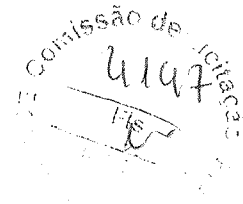 Comissão de Licitação
4147
Fls